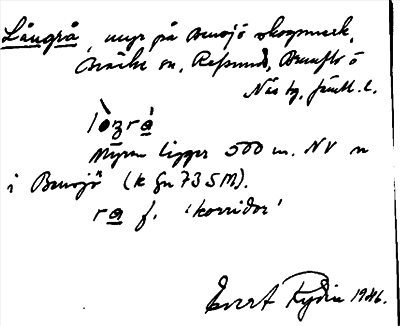 Långrå, myr på Bensjö skogsmark,
Bräcke sn, Refsund, Brunflo o
Näs tg, Jämtl. l.
Myren ligger 500 m. NV n
i Bensjö (k Gn 73 SM).
ra f. 'korridor'
Evert Rydin 1946.